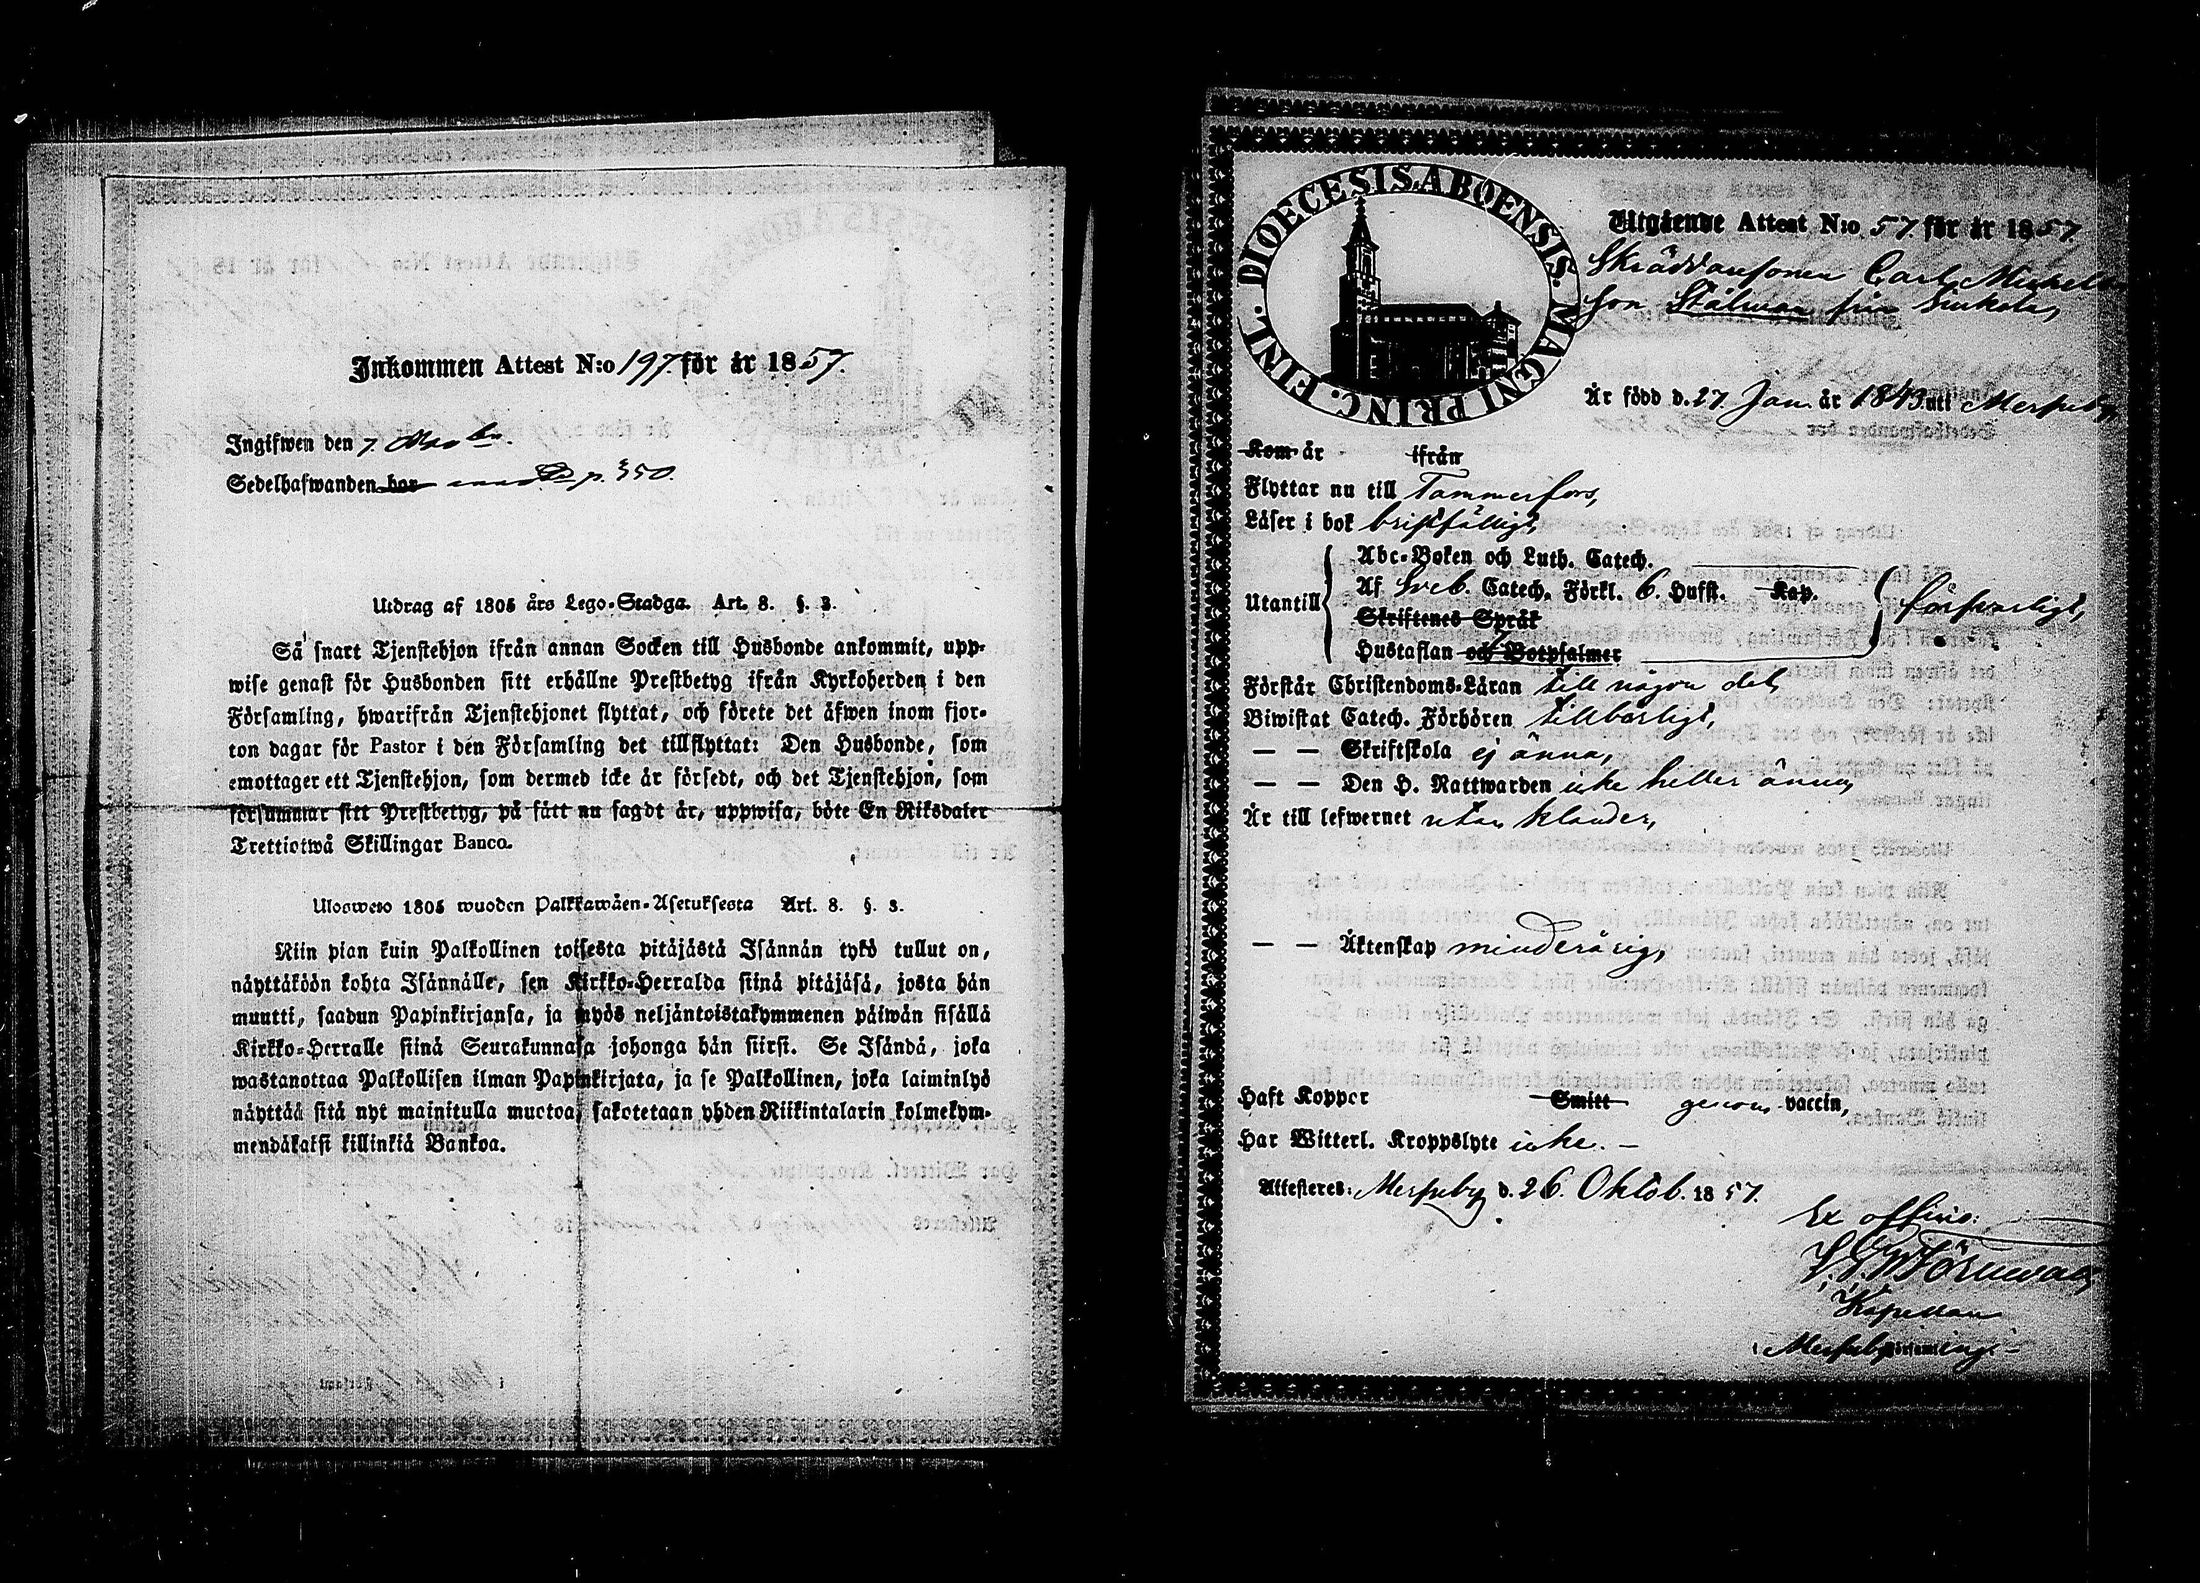 Inkommen Attest N:o 197 för år 1857.
Ingifwen den 7.
Sedelhafwanden har p. 350.
Utdrag af 1805 års Lego-Stadga. Art. 8. §. 3.
Så snart Tjenstehjon ifrån annan Socken till Husbonde ankommit, upp-
wise genast för Husbonden sitt erhållne Prestbetyg ifrån Kyrkoherden i den
Församling, hwarifrån Tjenstehjonet flyttat, och förete det äfwen inom fjor-
ton dagar för Pastor i den Församling det tillflyttat: Den Husbonde, som
emottager ett Tjenstehjon, som dermed icke är försedt, och det Tjenstehjon, som
försummar sitt Prestbetyg, på sätt nu sagdt är, uppwisa, böte En Riksdaler
Trettiotwå Skillingar Banco.
Ulosweto 1805 wuoden Palkkawäen-Asetuksesta Art. 8. §. 3.
Niin pian kuin Palkollinen toisesta pitäjästä Isännän tykö tullut on,
näyttäköön kohta Isännälle, sen Kirkko-Herralda siinä pitäjäsä, josta hän
muutti, saadun Papinkirjansa, ja myös neljäntoistakymmenen päiwän sisällä
Kirkko-Herralle siinä Seurakunnasa johonga hän siirsi. Se Isändä, joka
wastanottaa Palkollisen ilman Papinkirjata, ja se Palkollinen, joka laiminlyö
näyttää sitä nyt mainitulla muotoa, sakotetaan yhden Riikintalarin kolmekym-
mendäkaksi killinkiä Bankoa.
DIOECESIS ABOENSIS. MAGNI PRINC. FINL.
Utgående Attest N:o 57 för år 1857.
Skräddaresonen Carl Mickels
son Stålman från
Är född d. 27 Jan. år 1843 uti Messuby,
Kom år ifrån
Flyttar nu till Tammerfors,
Läser i bok bristfälligt,
Utantill
Abc-Boken och Luth. Catech.
Af Sveb. Catech. Förkl. 6. Hufst. Kap.
Skriftenes Språk
Hustaflan och Botpsalmer
försvarligt,
Förstår Christendoms-Läran till någon del,
Biwistat Catech. Förhören tillbörligt,
— — Skriftskola ej ännu,
— — Den H. Nattwarden icke heller ännu,
Är till lefwernet utan klander,
— — Äktenskap minderårig,
Haft Koppor Smitt genom vaccin,
Har Witterl. Kroppslyte icke. —
Attesteres: Messuby d. 26. Oktob. 1857.
Ex officio:
Kapellan
i Messuby Församling. —